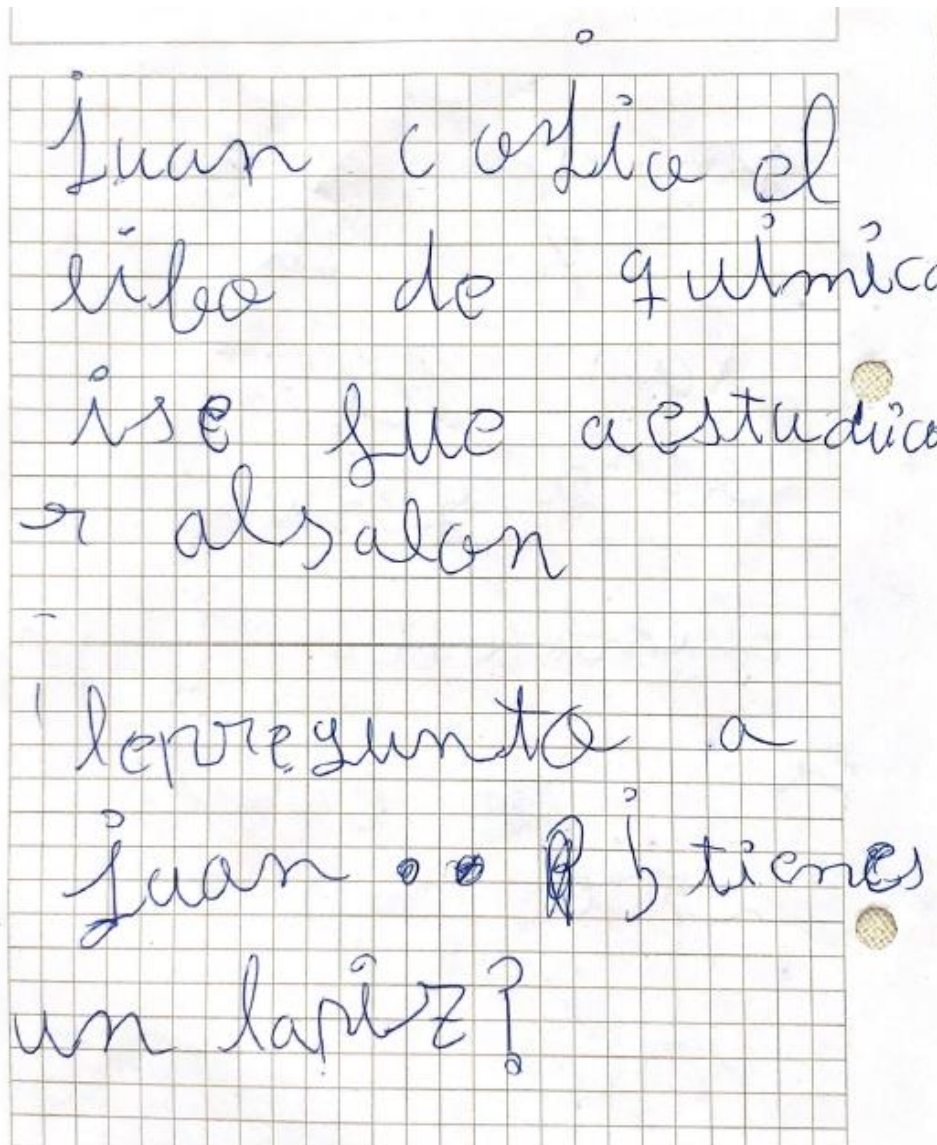 juan cojio el
libo de quimica
ise fue aestudia
r alsalon
lepregunto a
juan : ¿ tienes
un lapiz?